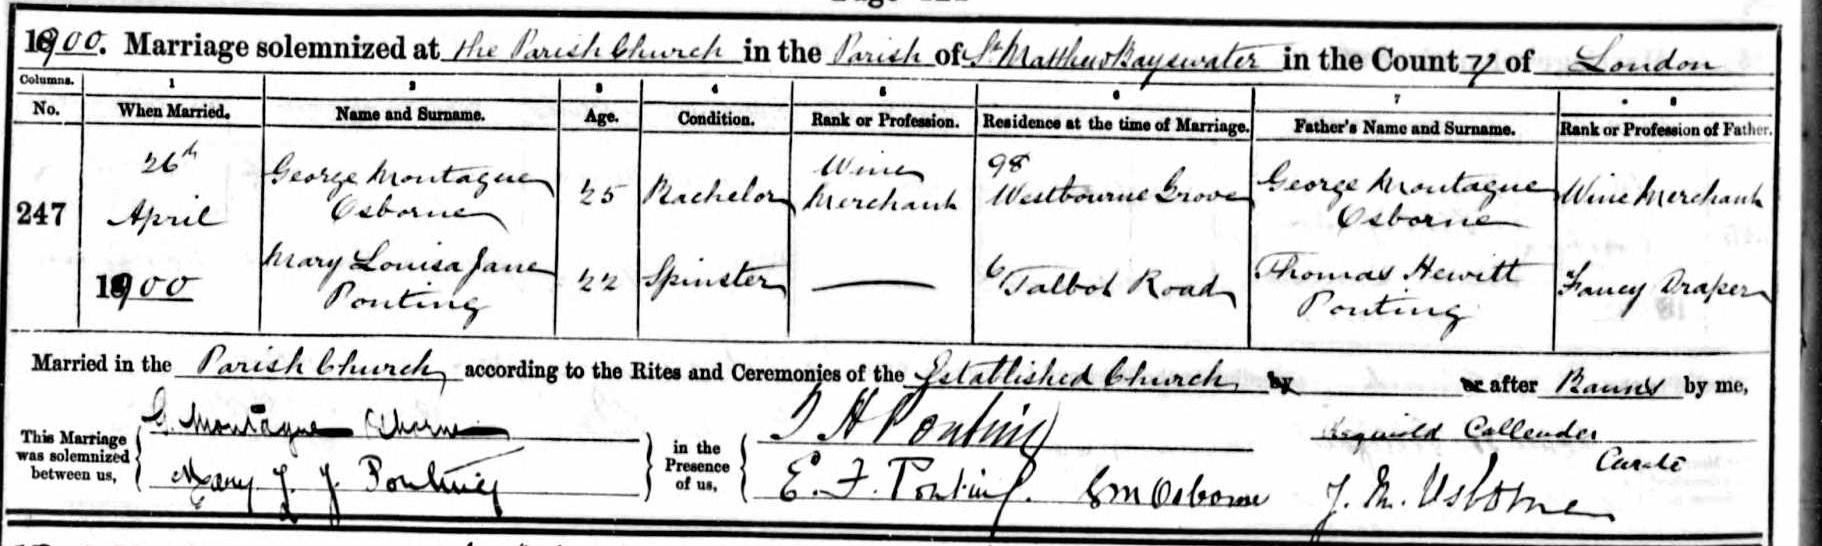 1900. Marriage solemnized at the Parish Church in the Parish of St Matthew Bayswater in the County of London
Columns. 1 2 3 4 5 6 7 8
No. When Married. Name and Surname. Age. Condition. Rank or Profession. Residence at the time of Marriage. Father's Name and Surname. Rank or Profession of Father.
247
26th
April
1900
George Montague
Osborne
25
Bachelor
Wine
Merchant
98
Westbourne Grove
George Montague
Osborne
Wine Merchant
Mary Louisa Jane
Ponting
22
Spinster
6 Talbot Road
Thomas Hewitt
Ponting
Fancy Draper
Married in the Parish Church according to the Rites and Ceremonies of the Established Church by or after Banns by me,
This Marriage
was solemnized
between us,
G. Montague Osborne
Mary L. J. Ponting
in the
Presence
of us,
T H Ponting
E. F. Ponting. G M Osborne
Reginald Callender
Curate
J. M. Osborne